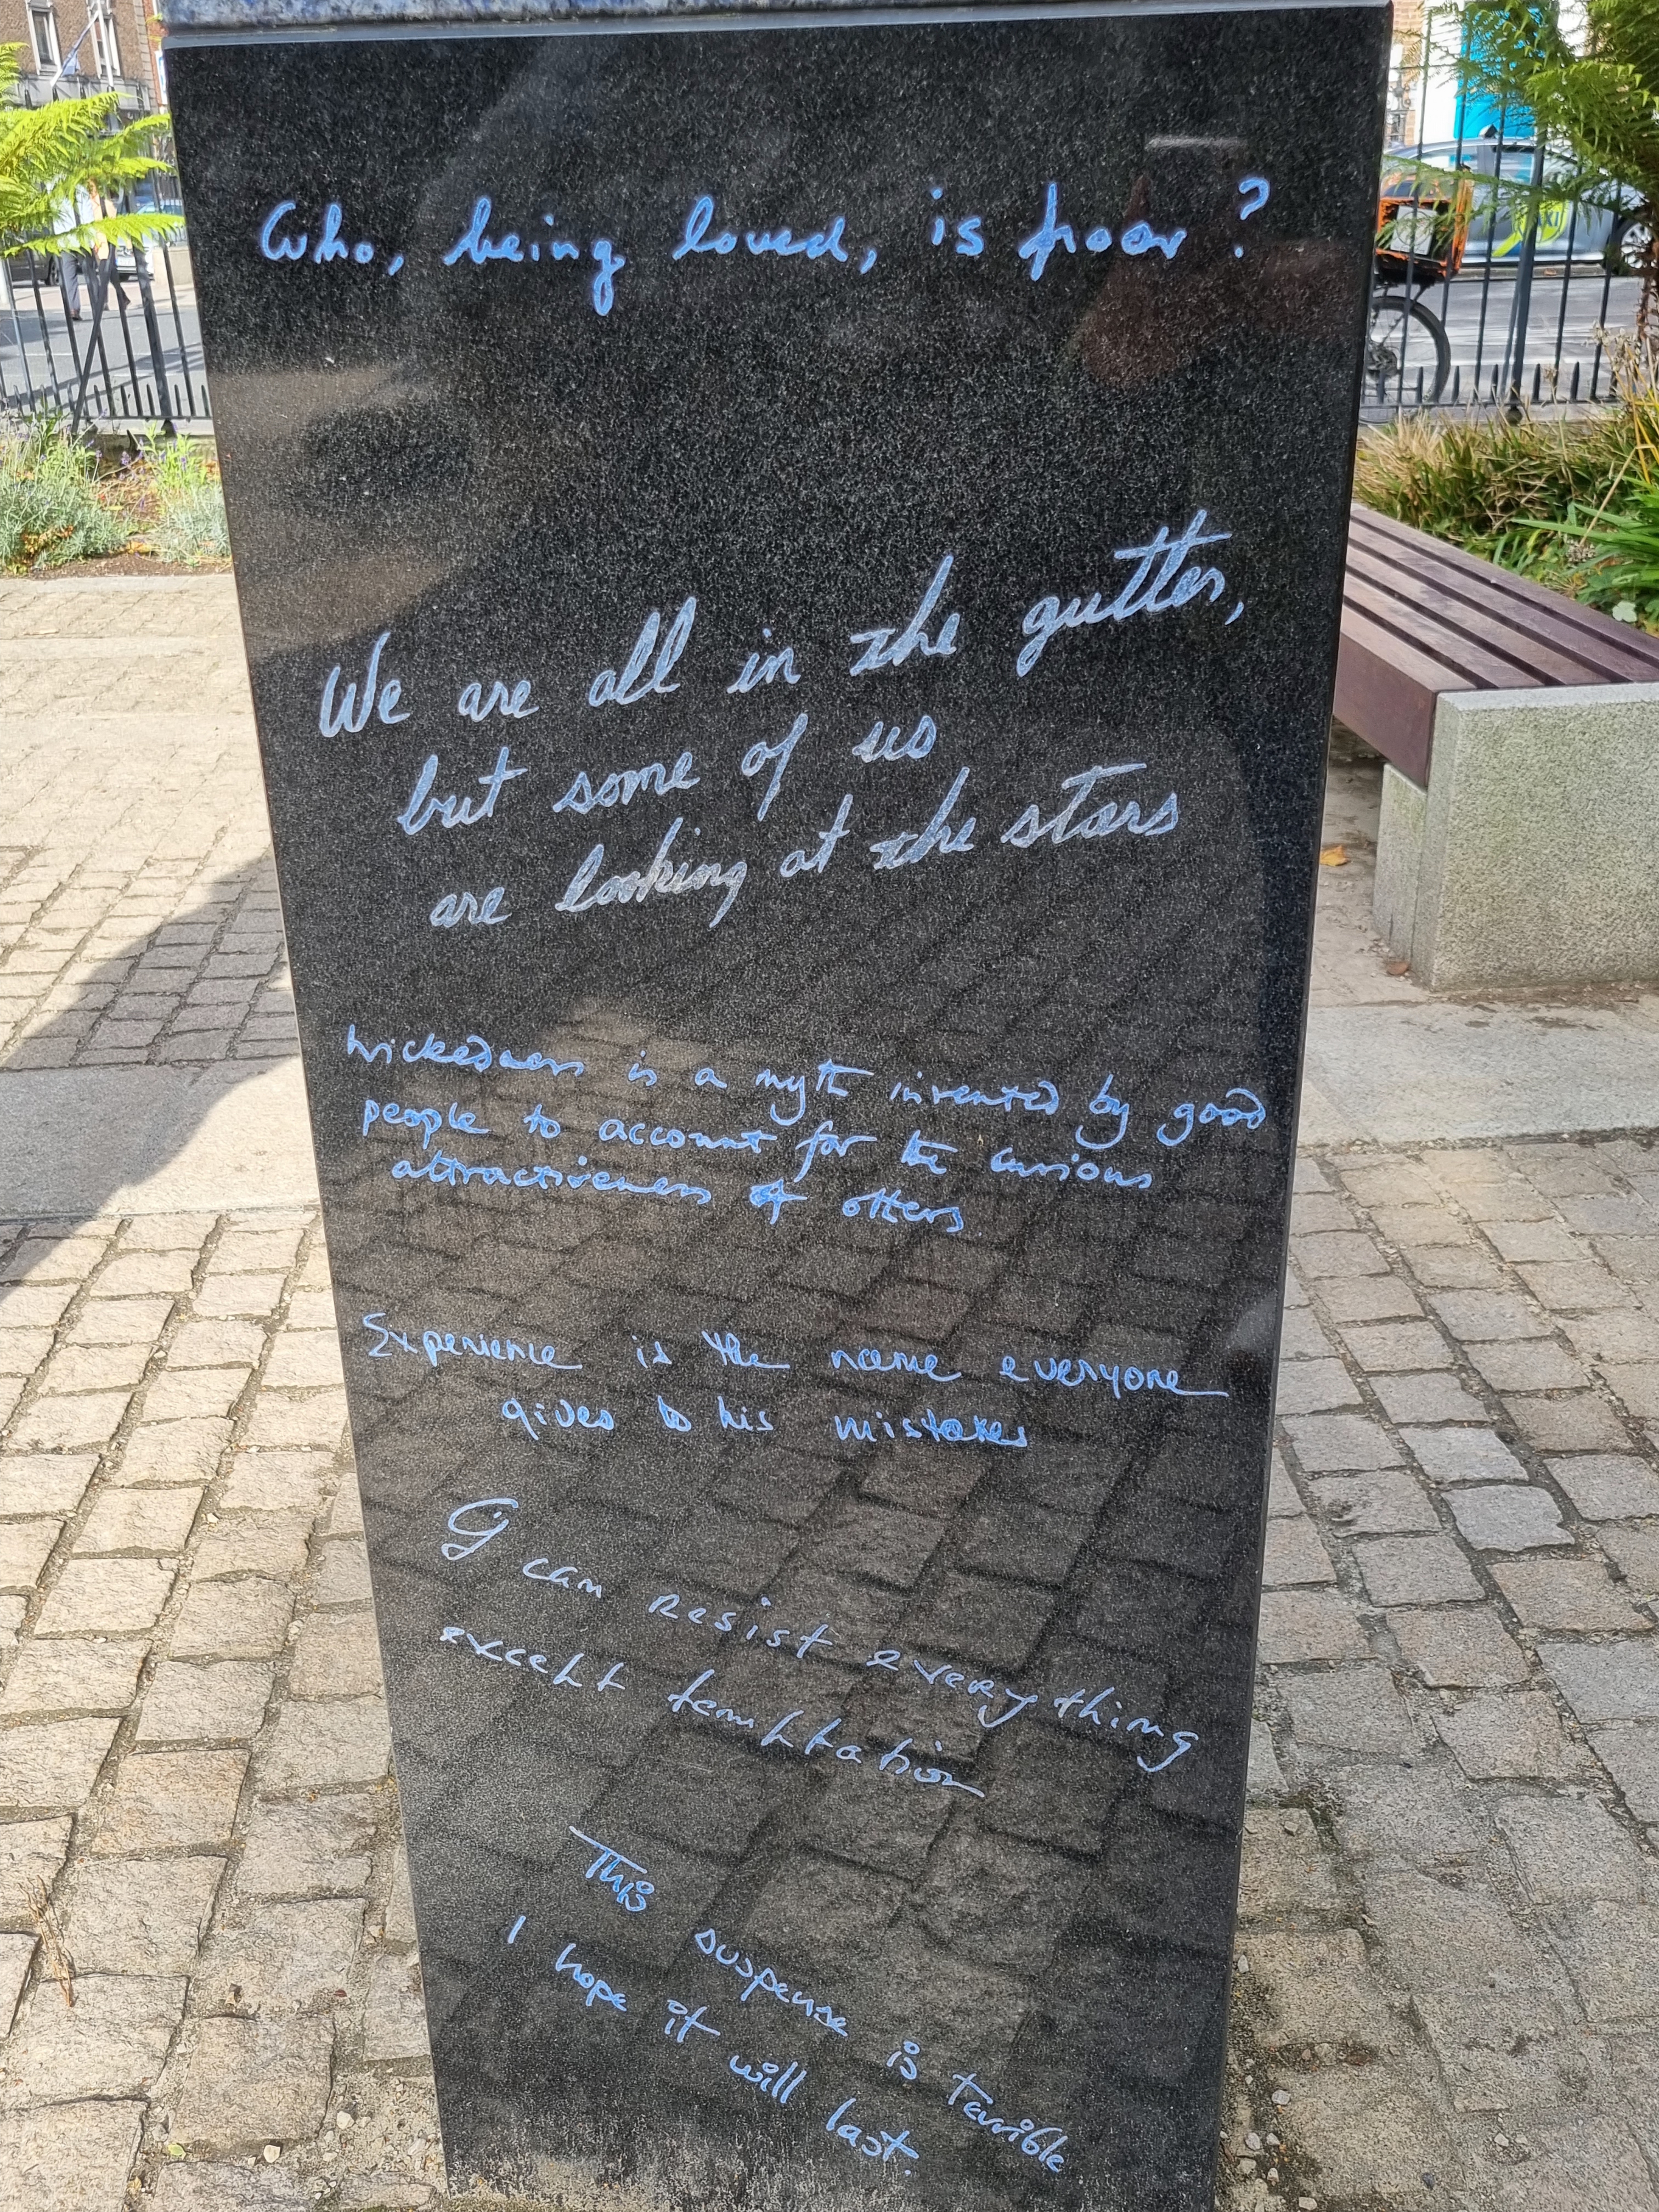 Who, being loved, is poor?
We are all in the gutter,
but some of us
are looking at the stars
Wickedness is a myth invented by good
people to account for the curious
attractiveness of others.
Experience is the name everyone
gives to his mistakes
I can resist everything
except temptation
This suspense is terrible
I hope it will last.
TAXI